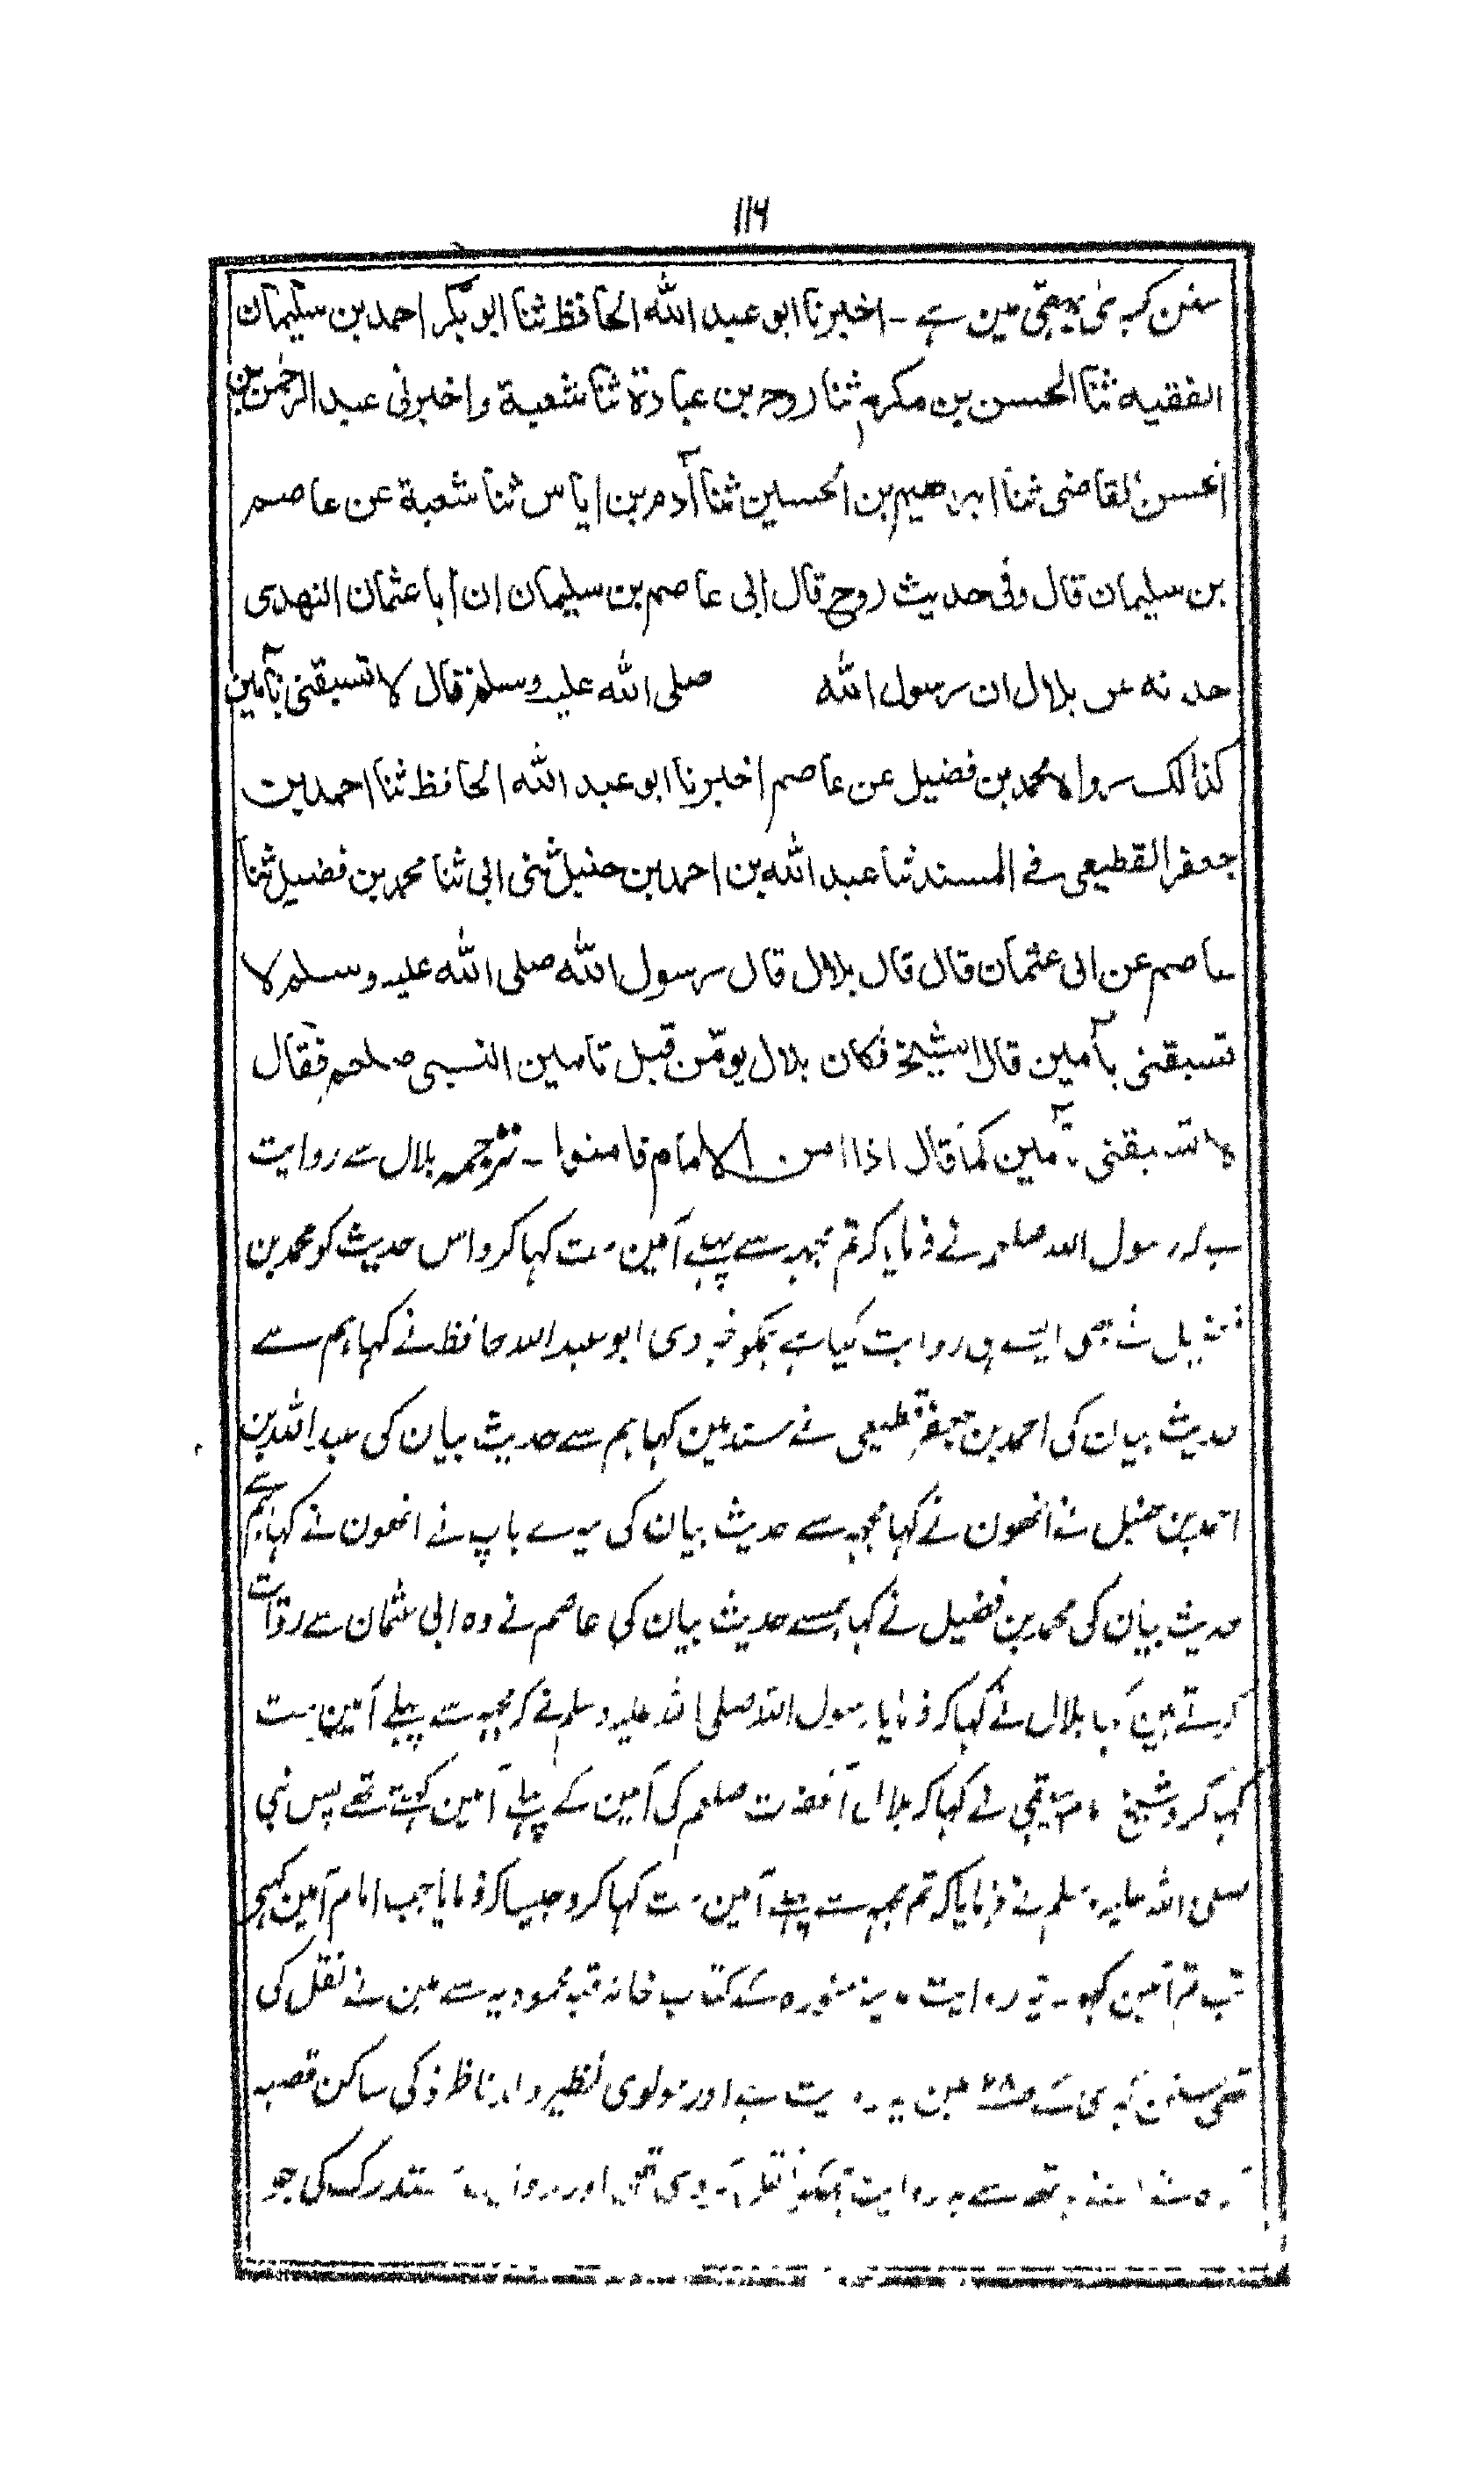 ۱۱۶
سنن کبری بیہقی مین ہے - اخبرنا ابو عبد اللہ الحافظ ثنا ابو بکر احمد بن سلیمان
الفقیہ ثنا الحسن بن مکرم ثنا روح بن عبادة ثنا شعبة واخبرنی عبد الرحمٰن بن
الحسن القاضی ثنا ابراھیم بن الحسین ثنا آدم بن ایاس ثنا شعبة عن عاصم
بن سلیمان قال وفی حدیث روح قال ابی عاصم بن سلیمان ان ابا عثمان النھدی
حدثه عن بلال ان رسول اللہ صلی اللہ علیہ وسلم قال لا تسبقنی بآمین
کذالک رواہ محمد بن فضیل عن عاصم اخبرنا ابو عبد اللہ الحافظ ثنا احمد بن
جعفر القطیعی فی المسند ثنا عبد اللہ بن احمد بن حنبل ثنی ابی ثنا محمد بن فضیل ثنا
عاصم عن ابی عثمان قال قال بلال قال رسول اللہ صلی اللہ علیہ وسلم لا
تسبقنی بآمین قال الشیخ فکان بلال یومّن قبل تامین النبی صلعم فقال
لا تسبقنی بآمین کما قال اذا امن الامام فامنوا - ترجمہ بلال سے روایت
ہے کہ رسول اللہ صلعم نے فرمایا کہ تم مجہہ سے پہلے آمین مت کہا کرو اس حدیث کو محمد بن
فضیل نے بھی ایسے ہی روایت کیا ہے ہمکو خبر دی ابو عبد اللہ حافظ نے کہا ہم سے
حدیث بیان کی احمد بن جعفر قطیعی نے مسند مین کہا ہم سے حدیث بیان کی عبد اللہ بن
احمد بن حنبل نے انھون نے کہا مجہہ سے حدیث بیان کی میرے باپ نے انھون نے کہا ہم سے
حدیث بیان کی محمد بن فضیل نے کہا ہمسے حدیث بیان کی عاصم نے وہ ابی عثمان سے روایت
کرتے ہین کہا بلال نے کہا کہ فرمایا رسول اللہ صلی اللہ علیہ وسلم نے کہ مجہہ سے پہلے آمین مت
کہا کرو شیخ بیہقی نے کہا کہ بلال آنحضرت صلعم کی آمین کے پہلے آمین کہتے تھے پس نبی
صلی اللہ علیہ وسلم نے فرمایا کہ تم مجہہ سے پہلے آمین مت کہا کرو جیسا کہ فرمایا جب امام آمین کہے
تب تم آمین کہو - یہ روایت مدینہ منورہ کے کتاب خانہ قبہ محمودیہ سے مین نے نقل کی
تھی سنن کبری کے ص۲۸ مین یہ روایت ہے اور مولوی نظیر و ابرناظر ذکی ساکن قصبہ
نے اپنے ہاتھ سے یہ روایت ہمکو نقل کر دی تھی اور مستدرک کی جو